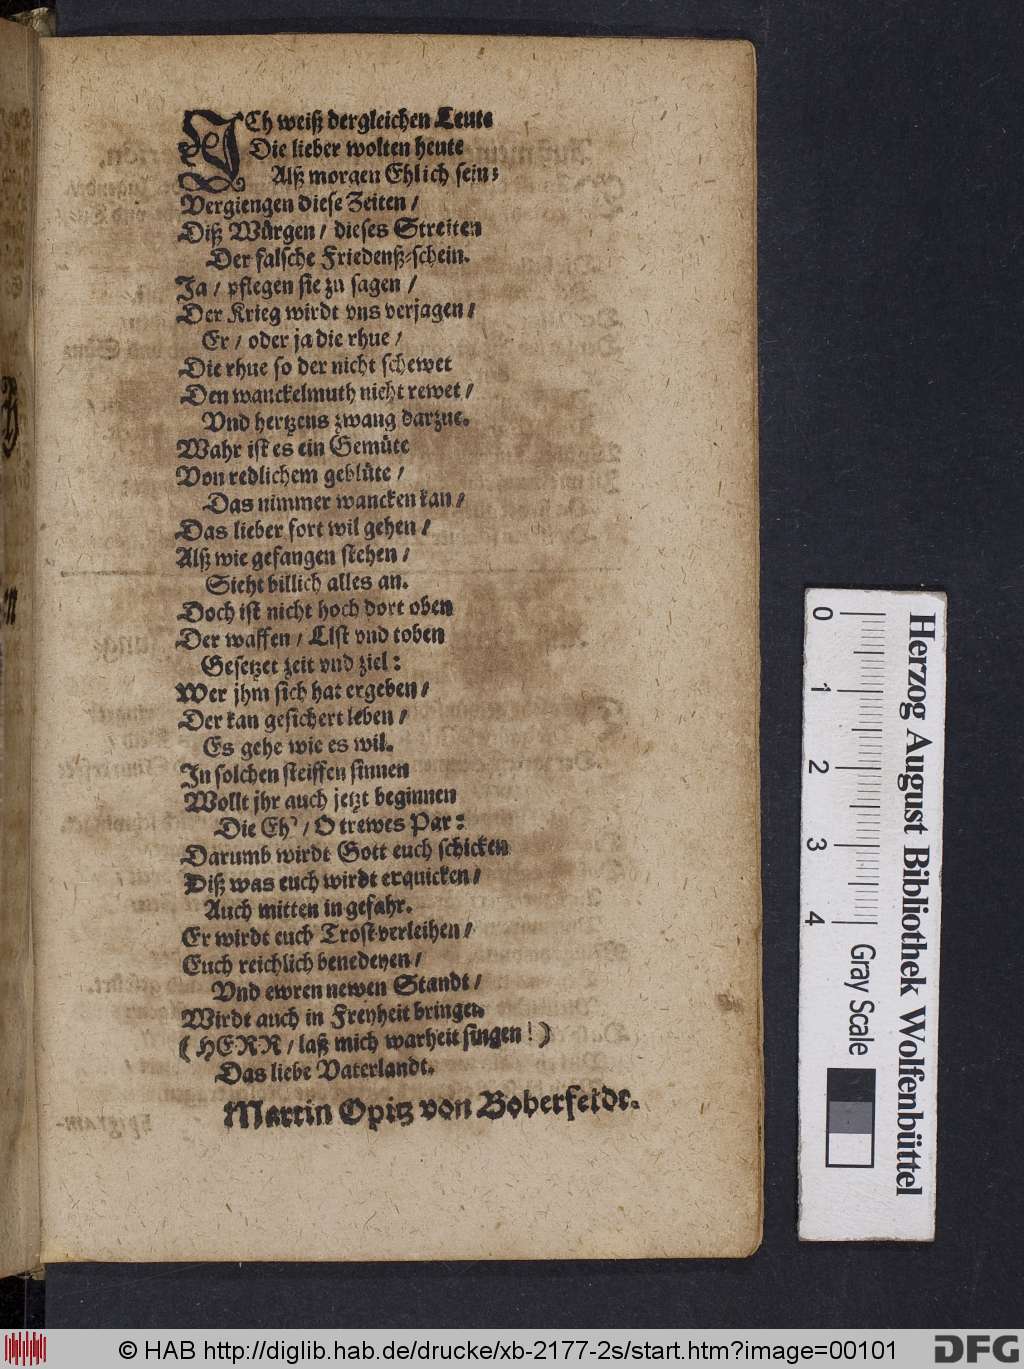 ICh weiß dergleichen Leute
Die lieber wolten heute
Alß morgen Ehlich sein;
Vergiengen diese Zeiten /
Diß Würgen / dieses Streiten
Der falsche Friedenß-schein.
Ja / pflegen sie zu sagen /
Der Krieg wirdt vns verjagen /
Er / oder ja die rhue /
Die rhue so der nicht schewet
Den wanckelmuth nicht rewet /
Vnd hertzens zwang darzue.
Wahr ist es ein Gemüte
Von redlichem geblüte /
Das nimmer wancken kan /
Das lieber fort wil gehen /
Alß wie gefangen stehen /
Sieht billich alles an.
Doch ist nicht hoch dort oben
Der waffen / List vnd toben
Gesetzet zeit vnd ziel:
Wer jhm sich hat ergeben /
Der kan gesichert leben /
Es gehe wie es wil.
In solchen steiffen sinnen
Wollt jhr auch jetzt beginnen
Die Eh' / O trewes Par:
Darumb wirdt Gott euch schicken
Diß was euch wirdt erquicken /
Auch mitten in gefahr.
Er wirdt euch Trost verleihen /
Euch reichlich benedeyen /
Vnd ewren newen Standt /
Wirdt auch in Freyheit bringen
(HERR / laß mich warheit singen!)
Das liebe Vaterlandt.
Martin Opitz von Boberfeldt.
Herzog August Bibliothek Wolfenbüttel
0 1 2 3 4
Gray Scale
© HAB http://diglib.hab.de/drucke/xb-2177-2s/start.htm?image=00101
DFG